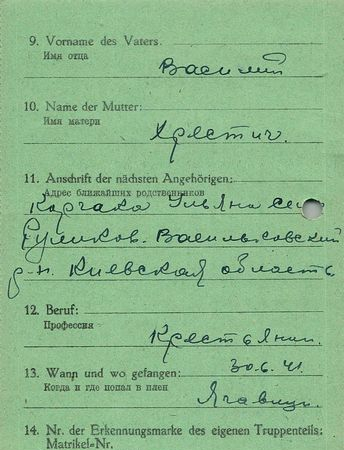 9. Vorname des Vaters:
Имя отца
Василий
10. Name der Mutter:
Имя матери
Хрестич.
11. Anschrift der nächsten Angehörigen:
Адрес ближайших родственников
Корчака Ульяна село
Василькоский
р-н. Киевская область
12. Beruf:
Профессия
Крестьянин.
13. Wann und wo gefangen: 30.6.41.
Когда и где попал в плен
14. Nr. der Erkennungsmarke des eigenen Truppenteils:
Matrikel-Nr.